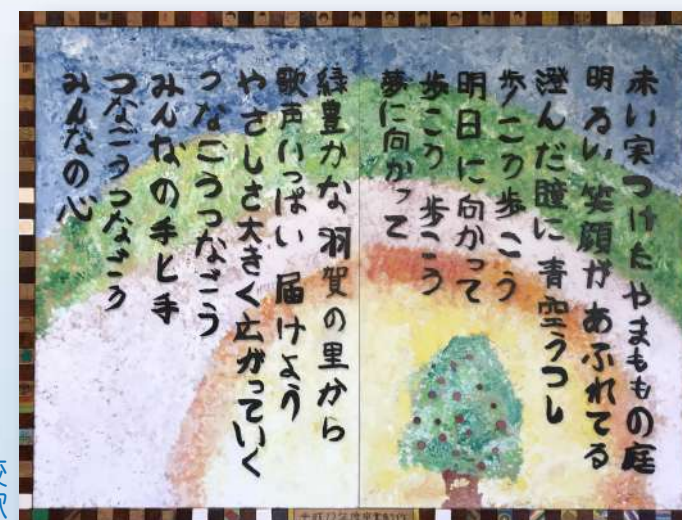 赤い実つけたやまももの庭
明るい笑顔があふれてる
澄んだ瞳に青空うつし
歩こう歩こう
明日に向かって
歩こう 歩こう
夢に向かって
緑豊かな羽賀の里から
歌声いっぱい 届けよう
やさしさ大きく広がっていく
つなごうつなごう
みんなの手と手
つなごうつなごう
みんなの心